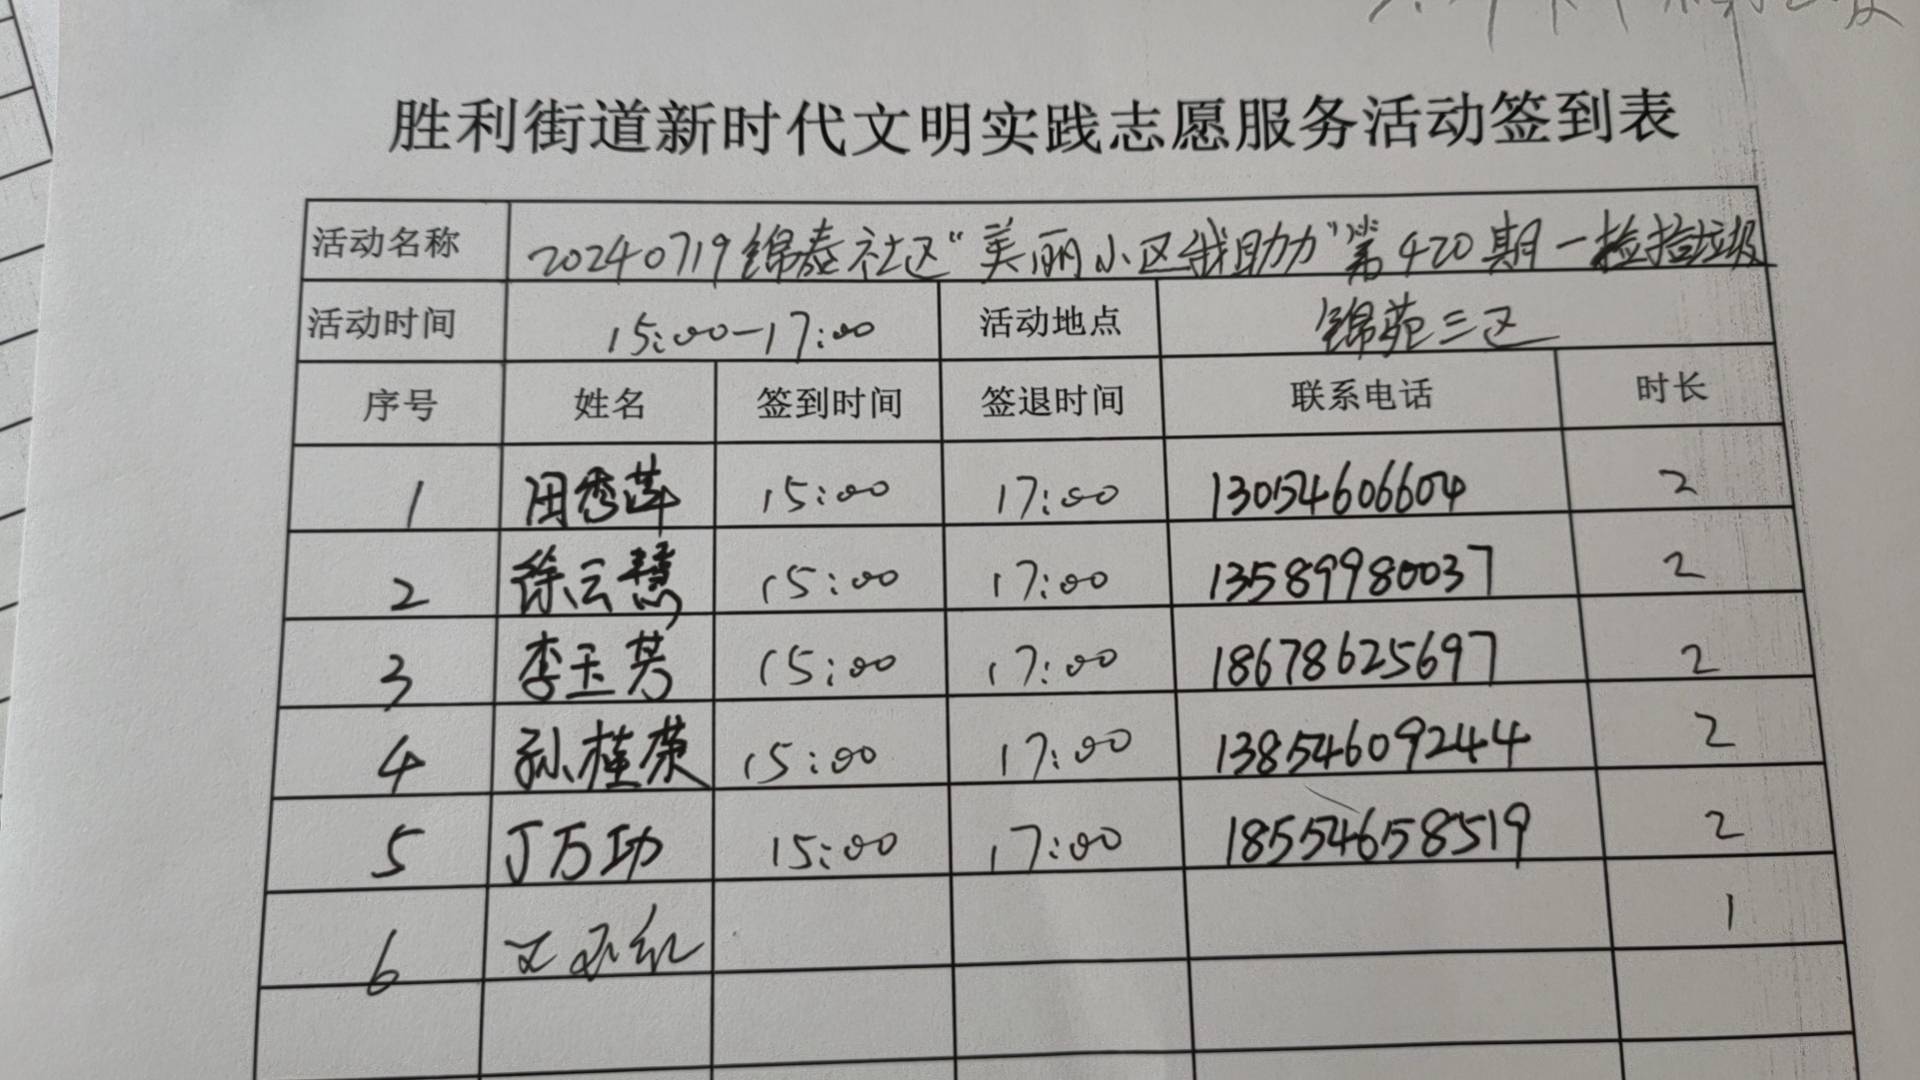 胜利街道新时代文明实践志愿服务活动签到表
活动名称 20240719锦泰社区“美丽小区我助力”第420期一捡拾垃圾
活动时间 15:00-17:00 活动地点 锦苑三区
序号 姓名 签到时间 签退时间 联系电话 时长
1 田秀萍 15:00 17:00 13054606604 2
2 徐云慧 15:00 17:00 13589980037 2
3 李玉芳 15:00 17:00 18678625697 2
4 孙桂荣 15:00 17:00 13854609244 2
5 丁万功 15:00 17:00 18554658519 2
6 1